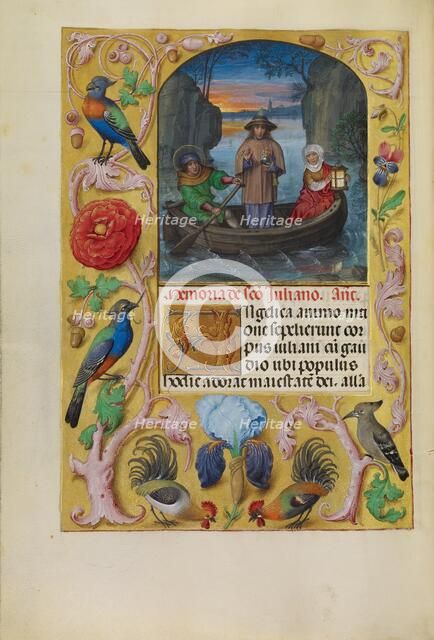 Memoria de sco Iuliano. Añt.
Angelica animo mi
one sepelierunt cor
pus iuliani cū gau
dio ubi populus
hodie adorat maiestatē dei. alla
Heritage
Heritage
Heritage
Heritage
Heritage
Heritage
Heritage
Heritage
Heritage